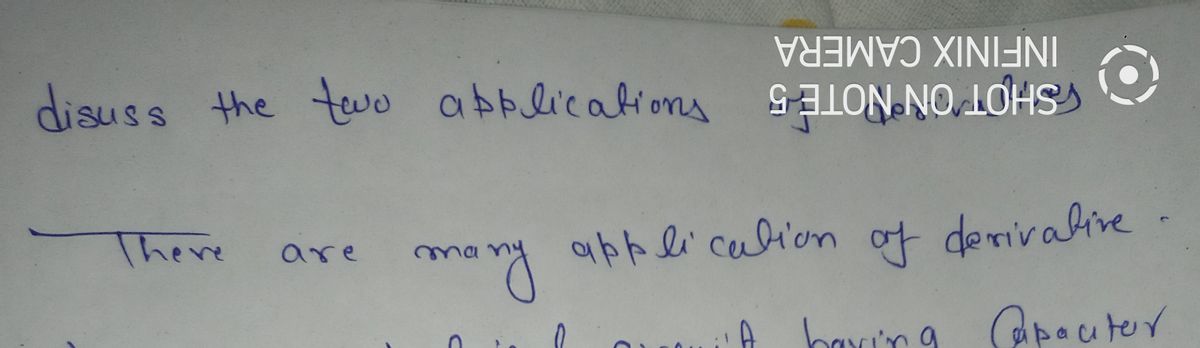 disuss the two applications of derivatives
There are many application of derivative.
having Capacuter
SHOT ON NOTE 5
INFINIX CAMERA